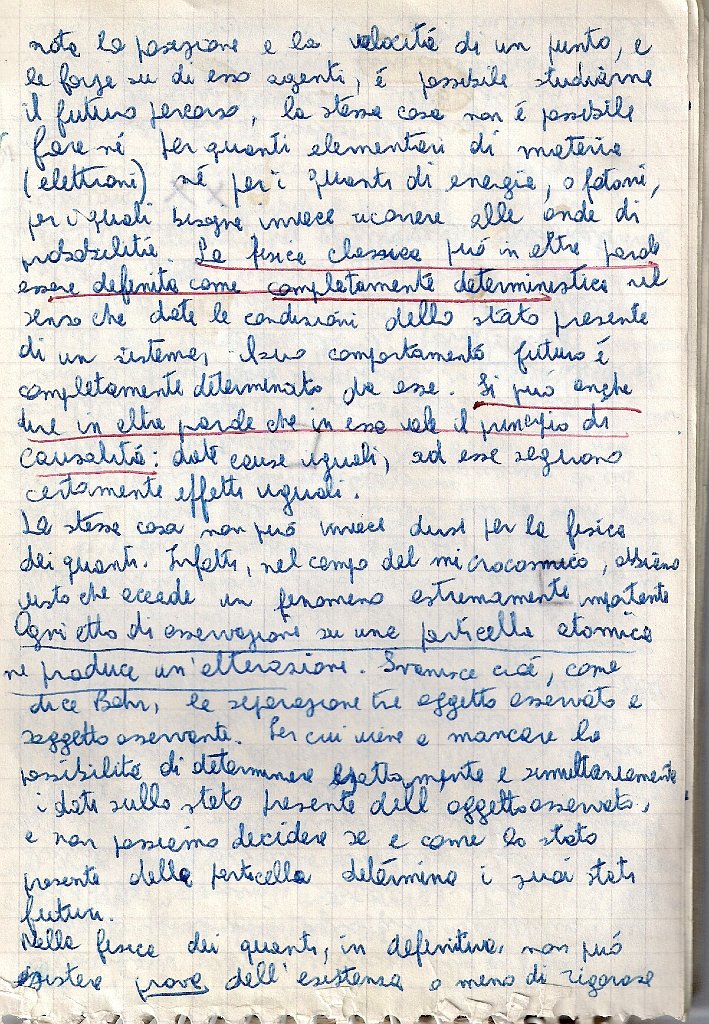 nota la posizione e la velocità di un punto, e
le forze su di esso agenti, é possibile studiarne
il futuro percorso, la stessa cosa non é possibile
fare né per quanti elementari di materia
(elettroni) né per i quanti di energia, o fotoni,
per i quali bisogna invece ricorrere alle onde di
probabilità. La fisica classica può in altre parole
essere definita come completamente deterministica nel
senso che date le condizioni dello stato presente
di un sistema, il suo comportamento futuro é
completamente determinato da esse. Si può anche
dire in altre parole che in essa vale il principio di
causalità: date cause uguali, ad esse seguono
certamente effetti uguali.
La stessa cosa non può invece dirsi per la fisica
dei quanti. Infatti, nel campo del microcosmico, abbiamo
visto che accade un fenomeno estremamente importante
Ogni atto di osservazione su una particella atomica
ne produce un'alterazione. Svanisce cioé, come
dice Bohr, la separazione tra oggetto osservato e
soggetto osservante. Per cui viene a mancare la
possibilità di determinare esattamente e simultaneamente
i dati sullo stato presente dell'oggetto osservato,
e non possiamo decidere se e come lo stato
presente della particella determina i suoi stati
futuri.
Nella fisica dei quanti, in definitiva, non può
esistere prova dell'esistenza o meno di rigorose